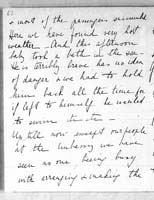 & most of the passengers
Here we have found very hot
weather – And this afternoon
baby took a bath in the sea –
He is terribly brave has no idea
of danger & we had to hold
him back all the time for
if left to himself he wanted
to swim
Up till now except our people
at the Embassy we have
seen no one being busy
with arranging & making the